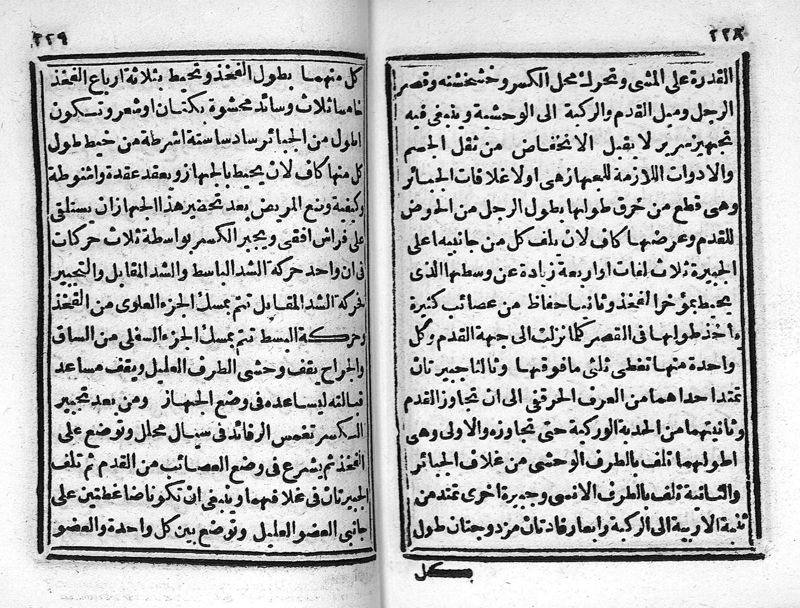 ٢٢٨
القدرة على المشى وتحرك محل الكسر وخشخشته وقصر
الرجل وميل القدم والركبة الى الوحشية وينبغى فيه
تجهيز سرير لا يقبل الانخفاض من ثقل الجسم
والادوات اللازمة للجهاز هى اولا غلافات الجبائر
وهى قطع من خرق طولها بطول الرجل من الحوض
للقدم وعرضها كاف لان يلف كل من جانبيه اعلى
الجبيرة ثلاث لفات او اربعة زيادة عن وسطها الذى
يحيط بمؤخر الفخذ وثانيا حفاظ من عصائب كثيرة
ياخذ طولها فى القصر كلما نزلت الى جهة القدم وكل
واحدة منها تغطى ثلثى مافوقها وثالثا جبيرتان
تمتد احداهما من العرف الحرقفى الى ان تجاوز القدم
وثانيتهما من الحدبة الوركية حتى تجاوزه والاولى وهى
اطولهما تلف بالطرف الوحشى من غلاف الجبائر
والثانية تلف بالطرف الانسى وجبيرة اخرى تمتد من
ثنية الاربية الى الركبة ورابعا رفادتان مزدوجتان طول
كل
٢٢٩
كل منهما بطول الفخذ وتحيط بثلاثة ارباع الفخذ
خامسا ثلاث وسائد محشوة بكتان او شعر وتكون
اطول من الجبائر سادسا ستة اشرطة من خيط طول
كل منها كاف لان يحيط بالجهاز ويعقد عقدة وانشوطة
وكيفية وضع المريض بعد تحضير هذا الجهاز ان يستلقى
على فراش افقى ويجبر الكسر بواسطة ثلاث حركات
فى ان واحد حركة الشد الباسط والشد المقابل والتجبير
فحركة الشد المقابل تتم بمسك الجزء العلوى من الفخذ
وحركة البسط تتم بمسك الجزء السفلى من الساق
والجراح يقف وحشى الطرف العليل ويقف مساعد
قبالته ليساعده فى وضع الجهاز ومن بعد تجبير
الكسر تغمس الرفائد فى سيال محلل وتوضع على
الفخذ ثم يشرع فى وضع العصائب من القدم ثم تلف
الجبيرتان فى غلافهما وينبغى ان تكونا ضاغطتين على
جانبى العضو العليل وتوضع بين كل واحدة والعضو